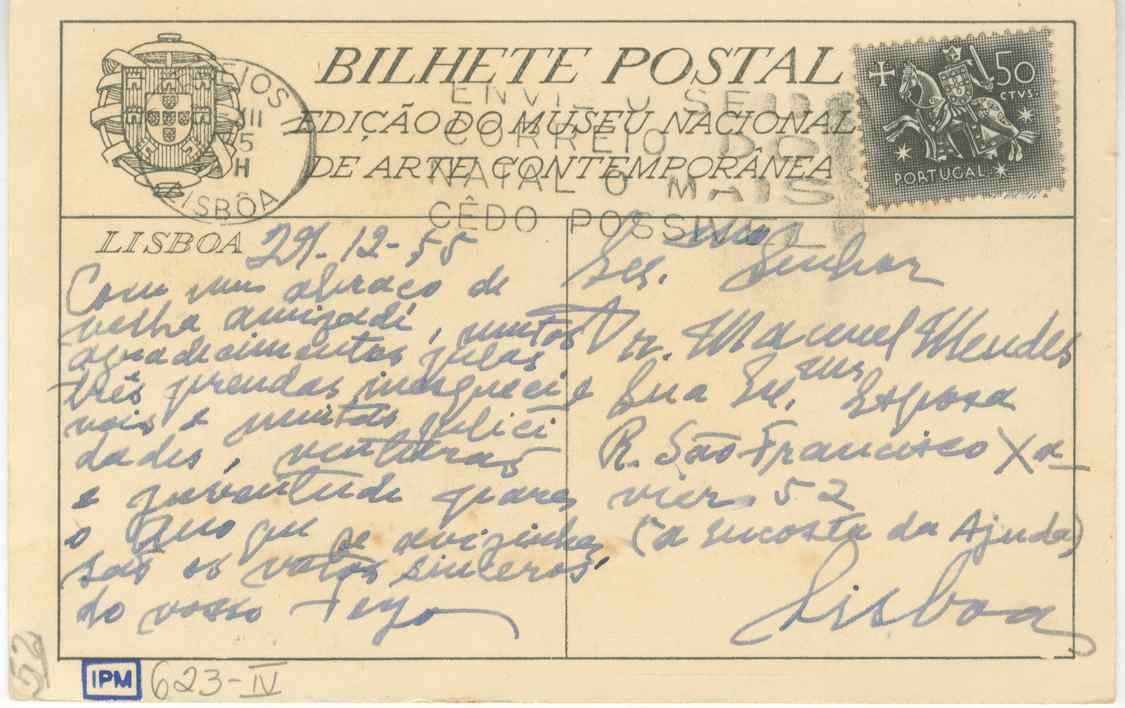 BILHETE POSTAL
EDIÇÃO DO MUSEU NACIONAL
DE ARTE CONTEMPORÂNEA
ENVIE O SEU
CORREIO DO
NATAL O MAIS
CÊDO POSSIVEL
LISBÔA
50
CTVS.
PORTUGAL
LISBOA 29-12-55
Com um abraço de
velha amizade, muitos
agradecimentos pelas
três prendas inesqueci
veis e muitas felici
dades, venturas
e juventude para
o Ano que se avizinha,
são os votos sinceros,
do vosso
Senhor
Dr. Manuel Mendes
e Sua Ex.ma Esposa
R. São Francisco Xa_
vier 52
(à encosta da Ajuda)
Lisboa
52
IPM 623-IV